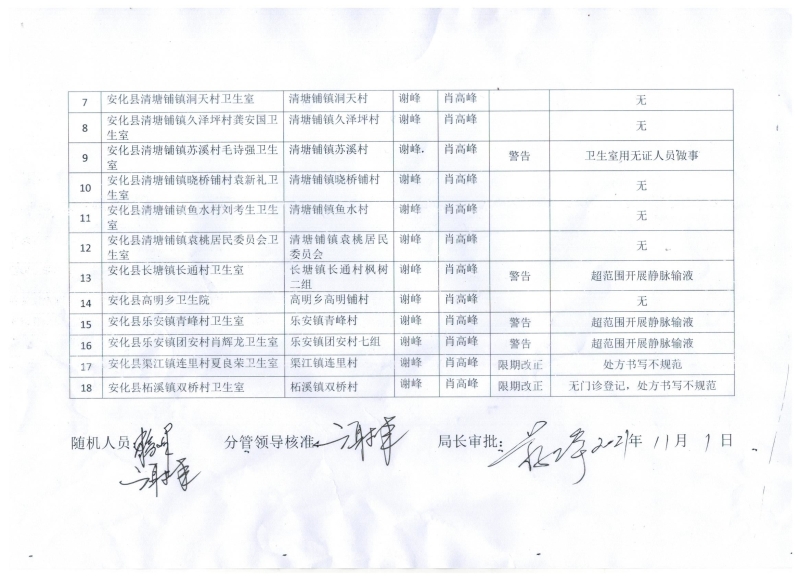 7 安化县清塘铺镇洞天村卫生室 清塘铺镇洞天村 谢峰 肖高峰 无
8 安化县清塘铺镇久泽坪村龚安国卫 清塘铺镇久泽坪村 谢峰 肖高峰 无
生室
9 安化县清塘铺镇苏溪村毛诗强卫生 清塘铺镇苏溪村 谢峰 肖高峰 警告 卫生室用无证人员做事
室
10 安化县清塘铺镇晓桥铺村袁新礼卫 清塘铺镇晓桥铺村 谢峰 肖高峰 无
生室
11 安化县清塘铺镇鱼水村刘考生卫生 清塘铺镇鱼水村 谢峰 肖高峰 无
室
12 安化县清塘铺镇袁桃居民委员会卫 清塘铺镇袁桃居民 谢峰 肖高峰 无
生室 委员会
13 安化县长塘镇长通村卫生室 长塘镇长通村枫树 谢峰 肖高峰 警告 超范围开展静脉输液
二组
14 安化县高明乡卫生院 高明乡高明铺村 谢峰 肖高峰 无
15 安化县乐安镇青峰村卫生室 乐安镇青峰村 谢峰 肖高峰 警告 超范围开展静脉输液
16 安化县乐安镇团安村肖辉龙卫生室 乐安镇团安村七组 谢峰 肖高峰 警告 超范围开展静脉输液
17 安化县渠江镇连里村夏良荣卫生室 渠江镇连里村 谢峰 肖高峰 限期改正 处方书写不规范
18 安化县柘溪镇双桥村卫生室 柘溪镇双桥村 谢峰 肖高峰 限期改正 无门诊登记，处方书写不规范
随机人员: 分管领导核准: 局长审批: 2021年 11月 9日